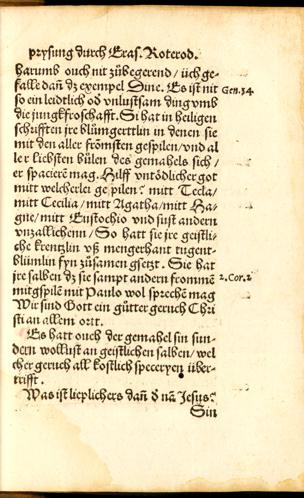 prysung durch Eras. Roterod.
harumb ouch nit zůbegerend / üch ge-
falle dañ dz exempel Dine. Es ist nit Gen. 34
so ein leidtlich oď vnlustsam ding vmb
die jungkfroschafft. Si hat in heiligen
schrifften jre blümgerttlin in denen sie
mit den aller frömsten gespilen / vnd al
ler liebsten bůlen des gemahels sich /
er spacierē mag. Hilff vntödlicher got
mitt welcherlei gespilen? mitt Tecla /
mitt Cecilia / mitt Agatha / mitt Ha-
gne / mitt Eustochio vnd sust andern
vnzallichenn / So hatt sie jre geistli-
che krentzlin vß mengerhant tugent-
blümlin fyn zůsamen gsetzt. Sie hat
jre salben dz sie sampt andern frommē 2. Cor. 2
mitgspilē mit Paulo wol sprechē mag
Wir sind Gott ein gůtter geruch Chri
sti an allem ortt.
Es hatt ouch der gemahel sin sun-
dern wollust an geistlichen salben / wel
cher geruch all kostlich speceryen über-
trifft.
Was ist lieplichers dañ ď nā Jesus?
Sin